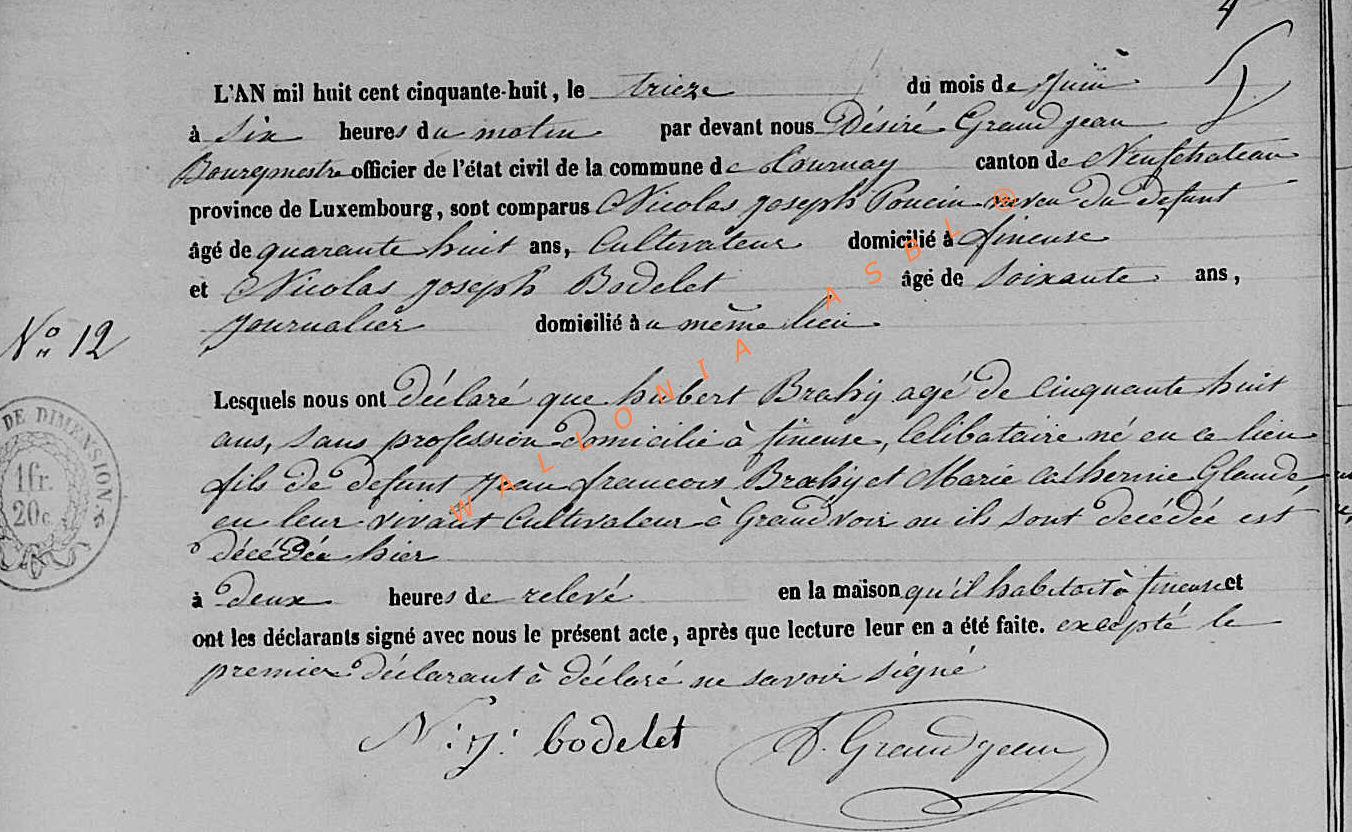 4
L'AN mil huit cent cinquante-huit, le trieze du mois de Juin
à Six heures du matin par devant nous Désiré Grandjean
Bourgmestre officier de l'état civil de la commune de Tournay canton de Neufchateau
province de Luxembourg, sont comparus Nicolas Joseph Poncin neveu du défunt
âgé de quarante huit ans, Cultivateur domicilié à fineuse
et Nicolas Joseph Bodelet âgé de Soixante ans,
Journalier domicilié au même lieu
N° 12
Lesquels nous ont déclaré que hubert Brahy agé de Cinquante huit
ans, Sans profession domicilié à fineuse, Célibataire né en ce lieu
fils de défunt Jean francois Brahy et Marie Catherine Glaude
en leur vivant Cultivateur à Grandvoir ou ils sont décédée est
décédée hier
à deux heures de relevé en la maison qu'il habitait à fineuse et
ont les déclarants signé avec nous le présent acte, après que lecture leur en a été faite. excepté le
premier déclarant à déclaré ne savoir signé
N: J: bodelet D. Grandjean
DE DIMENSION
1 fr.
20 c.
WALLONIA ASBL ®